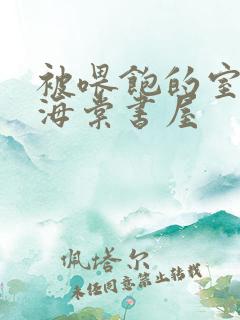 被喂饱的室
海棠书屋
佩塔尔
未经同意禁止转载